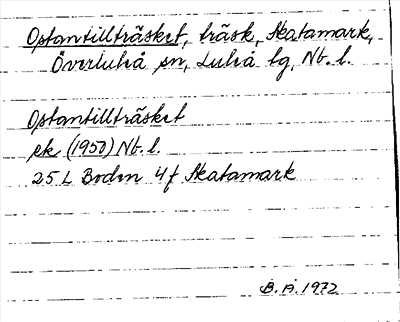 Östantillträsket, träsk, Skatamark,
Överluleå sn, Luleå tg, Nb. l.
Östantillträsket
ek (1950) Nb. l.
25 L Boden 4f Skatamark
B. Å. 1972